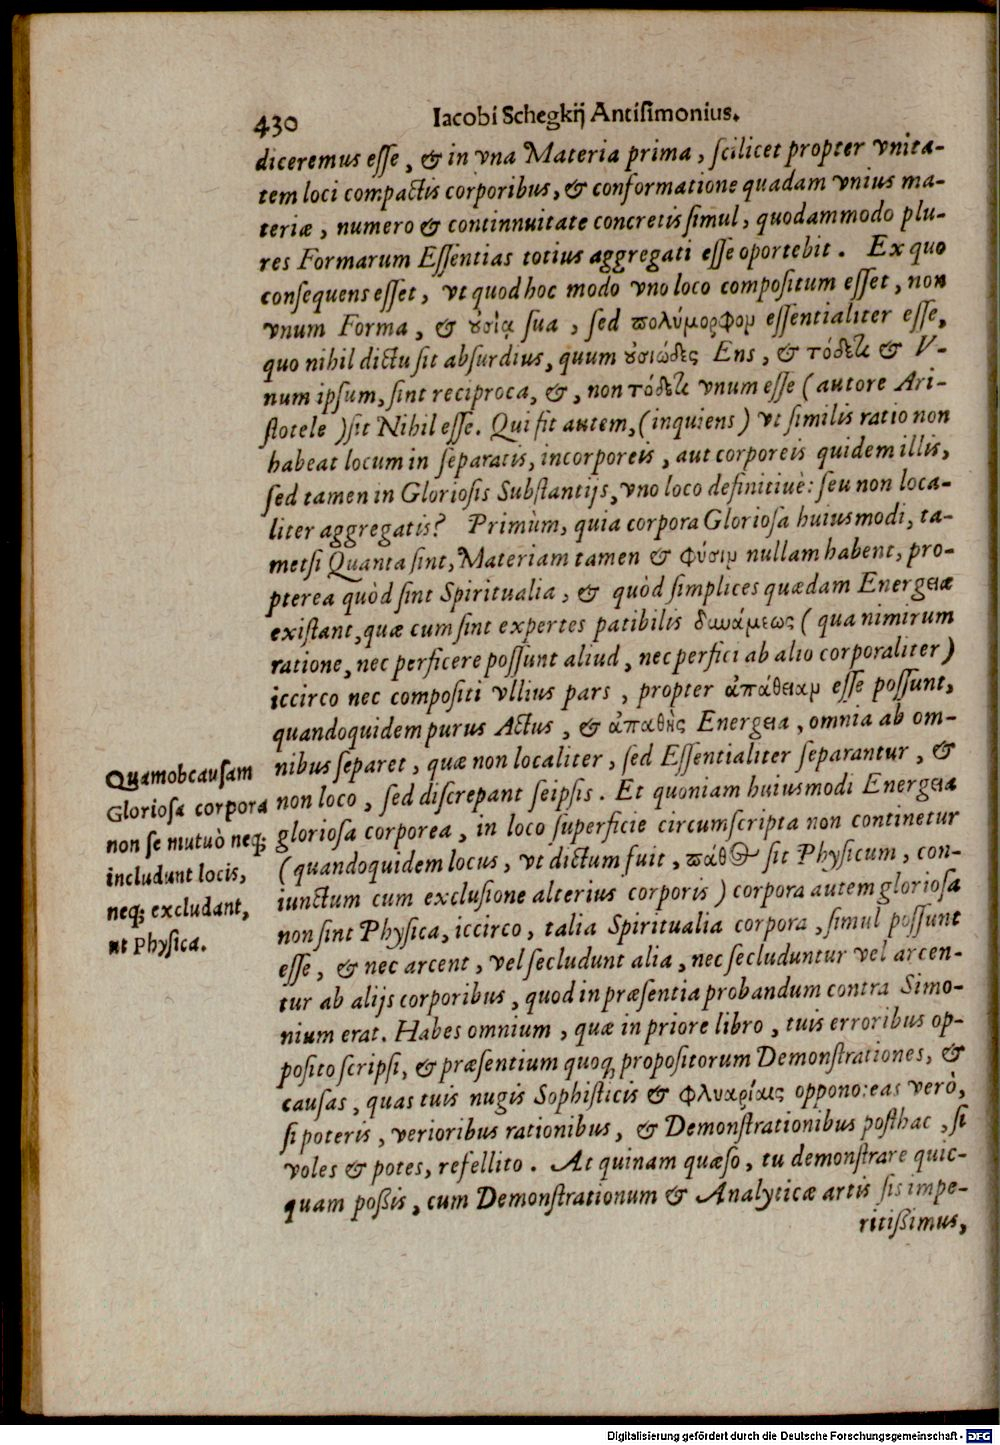 430 Iacobi Schegkij Antisimonius.
diceremus esse, & in vna Materia prima, scilicet propter vnita-
tem loci compactis corporibus, & conformatione quadam vnius ma-
teriæ, numero & continnuitate concretis simul, quodammodo plu-
res Formarum Essentias totius aggregati esse oportebit. Ex quo
consequens esset, vt quod hoc modo vno loco compositum esset, non
vnum Forma, & ȣσίᾳ sua, sed πολύμορφον essentialiter esse,
quo nihil dictu sit absurdius, quum ȣσιώδες Ens, & τόδετι & V-
num ipsum, sint reciproca, &, non τόδετι vnum esse (autore Ari-
stotele) sit Nihil esse. Qui fit autem, (inquiens) vt similis ratio non
habeat locum in separatis, incorporeis, aut corporeis quidem illis,
sed tamen in Gloriosis Substantijs, vno loco definitiuè: seu non loca-
liter aggregatis? Primùm, quia corpora Gloriosa huiusmodi, ta-
metsi Quanta sint, Materiam tamen & φύσιν nullam habent, pro-
pterea quòd sint Spiritualia, & quòd simplices quædam Energeiæ
existant, quæ cum sint expertes patibilis δυνάμεως (qua nimirum
ratione, nec perficere possunt aliud, nec perfici ab alio corporaliter)
iccirco nec compositi vllius pars, propter ἀπάθειαν esse possunt,
quandoquidem purus Actus, & ἀπαθὴς Energeia, omnia ab om-
nibus separet, quæ non localiter, sed Essentialiter separantur, &
non loco, sed discrepant seipsis. Et quoniam huiusmodi Energeia
gloriosa corporea, in loco superficie circumscripta non continetur
(quandoquidem locus, vt dictum fuit, πάθος sit Physicum, con-
iunctum cum exclusione alterius corporis) corpora autem gloriosa
non sint Physica, iccirco, talia Spiritualia corpora, simul possunt
esse, & nec arcent, vel secludunt alia, nec secluduntur vel arcen-
tur ab alijs corporibus, quod in præsentia probandum contra Simo-
nium erat. Habes omnium, quæ in priore libro, tuis erroribus op-
posito scripsi, & præsentium quoq; propositorum Demonstrationes, &
causas, quas tuis nugis Sophisticis & φλυαρίαις oppono: eas verò,
si poteris, verioribus rationibus, & Demonstrationibus posthac, si
voles & potes, refellito. At quinam quæso, tu demonstrare quic-
quam poßis, cum Demonstrationum & Analyticæ artis sis impe-
ritißimus,
Quam ob causam
Gloriosa corpora
non se mutuò neq;
includunt locis,
neq; excludant,
ut Physica.
Digitalisierung gefördert durch die Deutsche Forschungsgemeinschaft - DFG